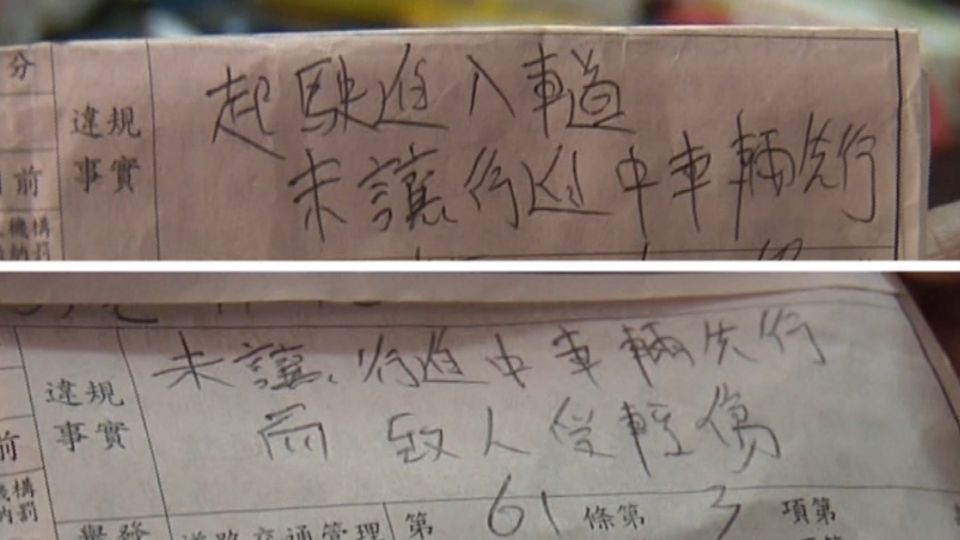 分
違規
事實
起駛進入車道
未讓行進中車輛先行
前
機構
違規
事實
未讓行進中車輛先行
而致人受輕傷
前
構
罰
舉發
道路交通管理
第61條第3項第